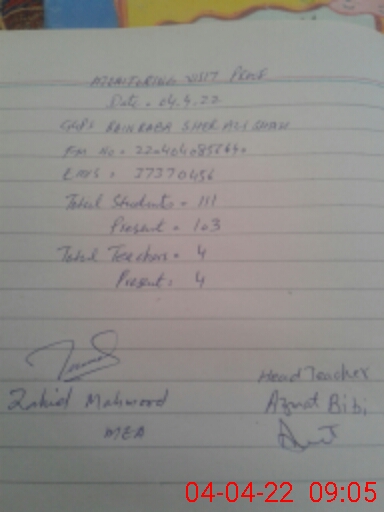 MONITORING VISIT PROOF
Date = 04.4.22
GGPS SHER ALI SHAH
FM No =
EMIS = 37370456
Total Students = 111
Present = 103
Total Teachers = 4
Present = 4
Head Teacher
Zahid Mahmood
Azmat Bibi
MEA
04-04-22 09:05